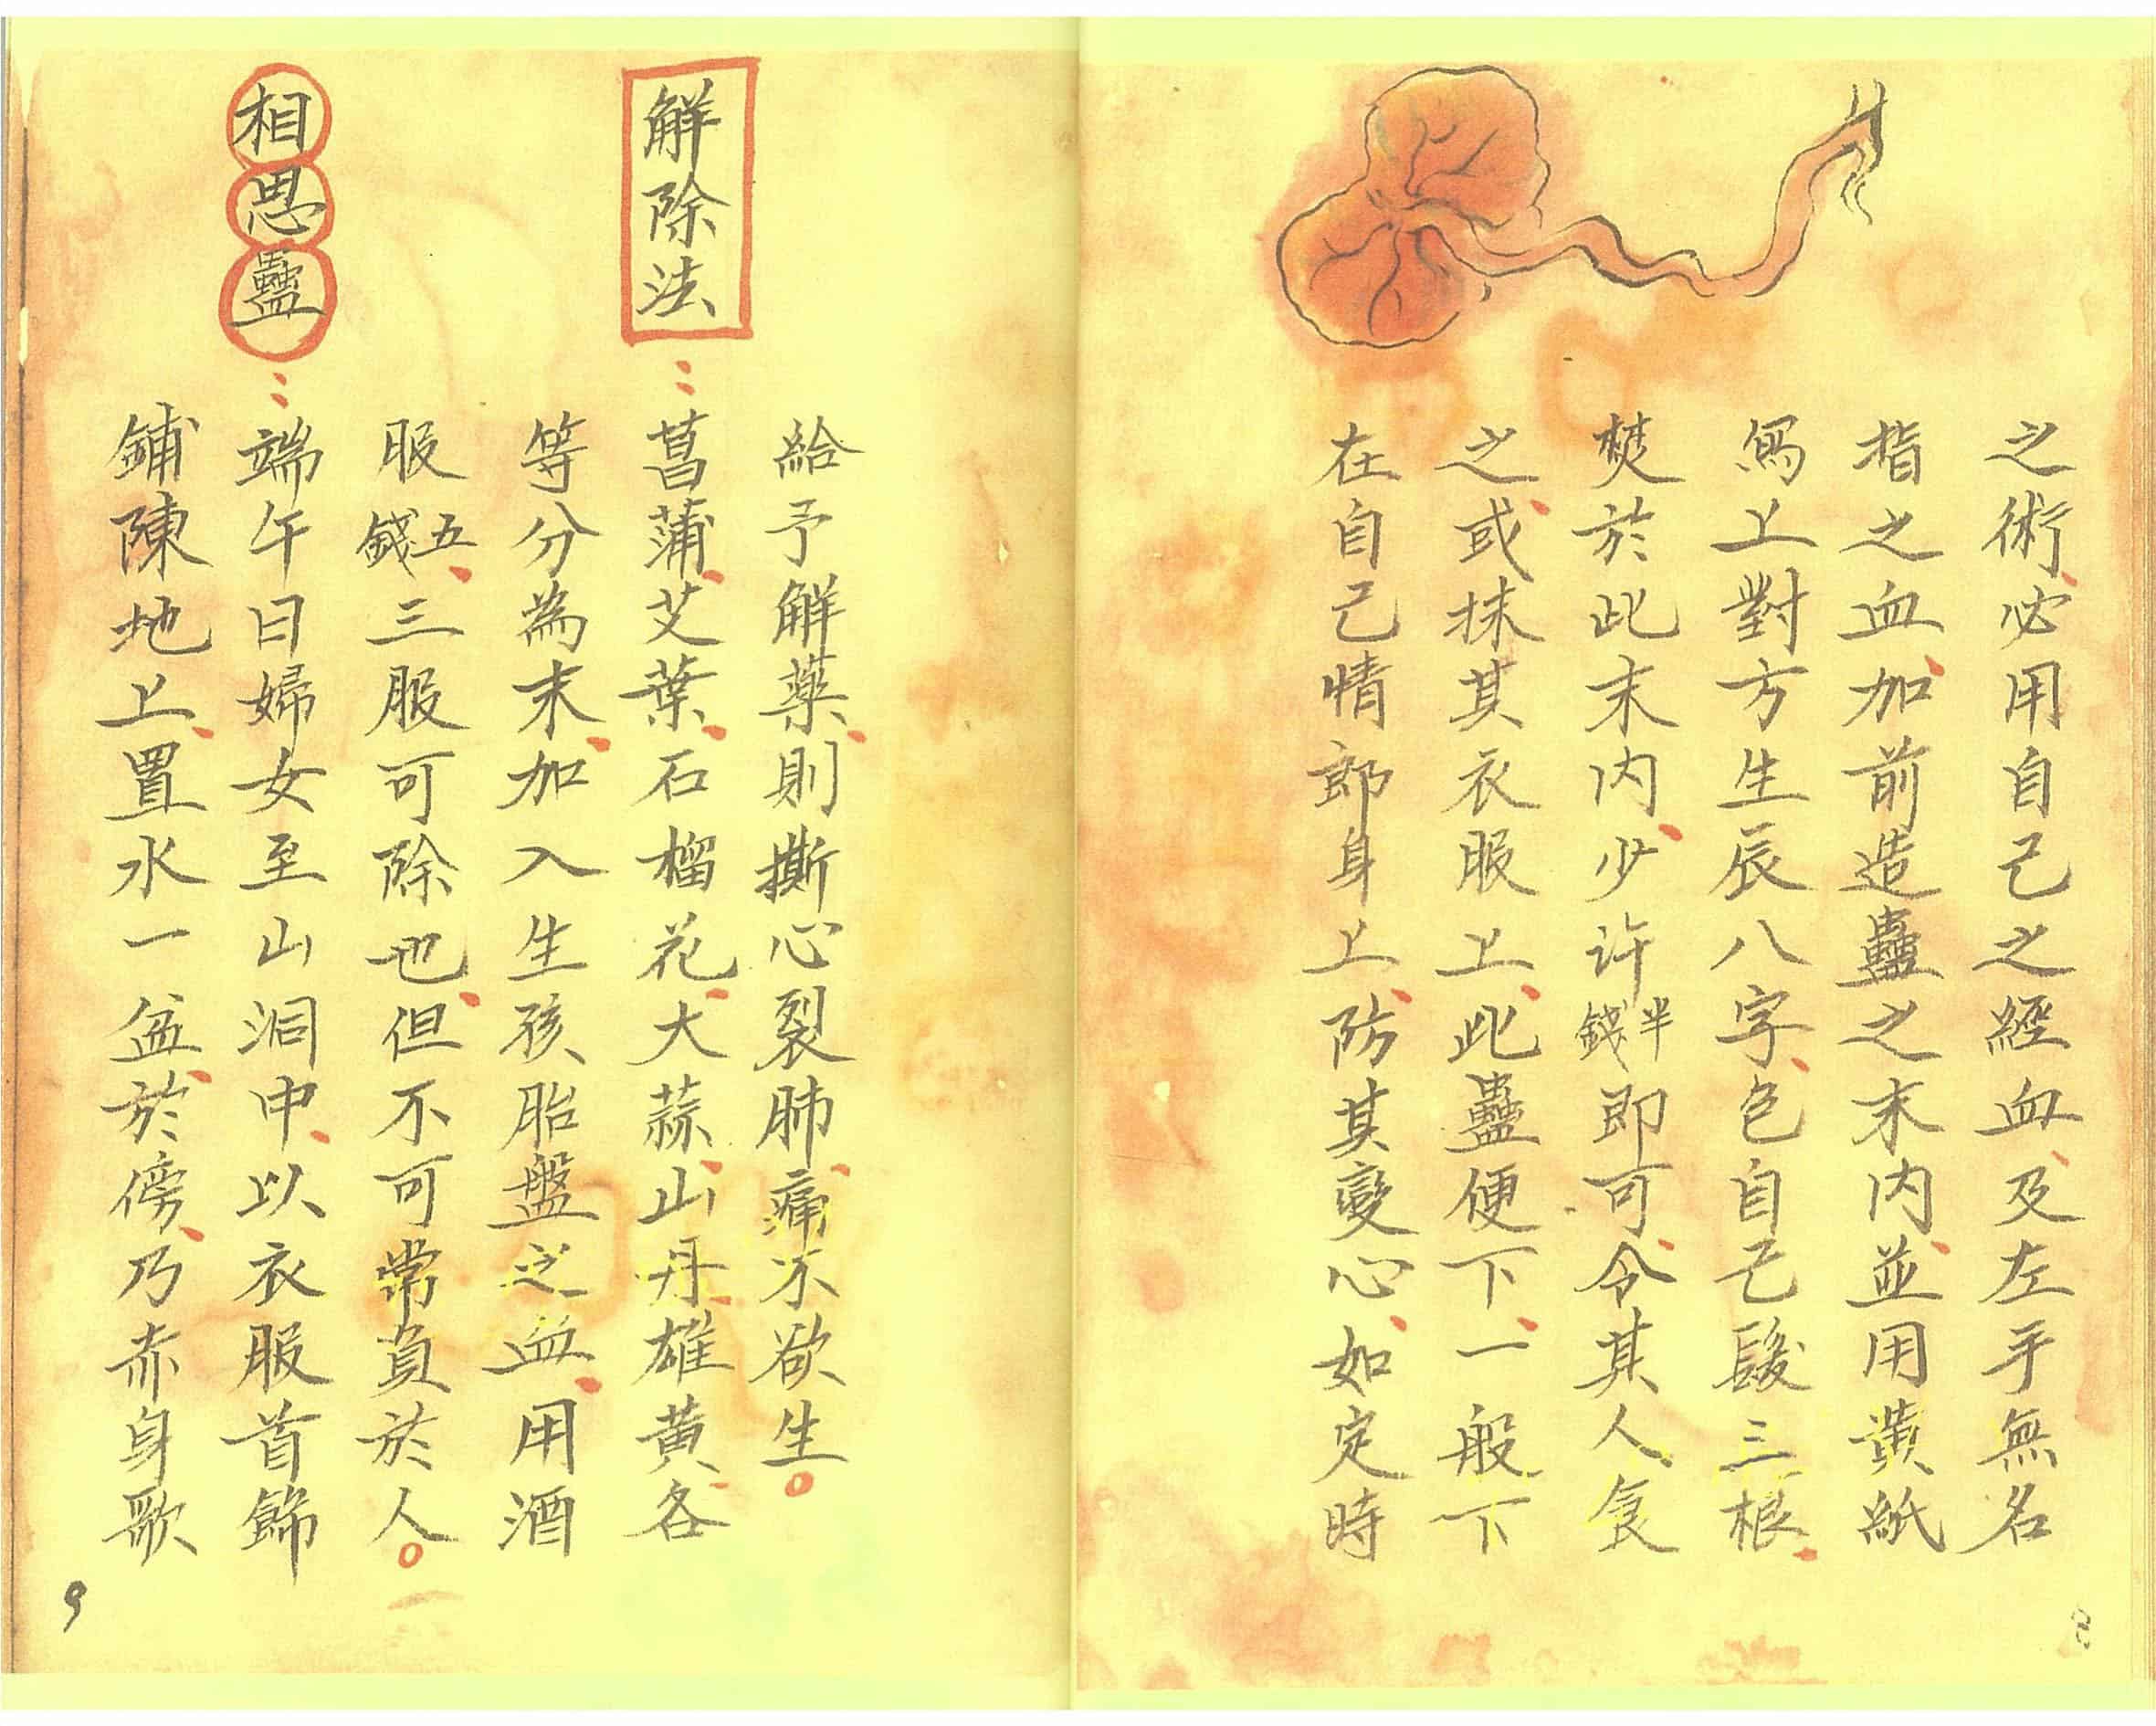 之術必用自己之經血及左手無名
指之血加前造蠱之末內並用黃紙
寫上對方生辰八字包自己髮三根
焚於此末内少许半錢即可令其人食
之或抹其衣服上此蠱便下一般下
在自己情郎身上防其變心如定時
8
給予解藥則撕心裂肺痛不欲生。
解除法：菖蒲、艾葉、石榴花、大蒜、山丹雄黃各
等分為末、加入生孩胎盤之血、用酒
服五錢、三服可除也、但不可常負於人。
相思蠱：端午日婦女至山洞中、以衣服首飾
鋪陳地上、置水一盆、於傍、乃赤身歌
9